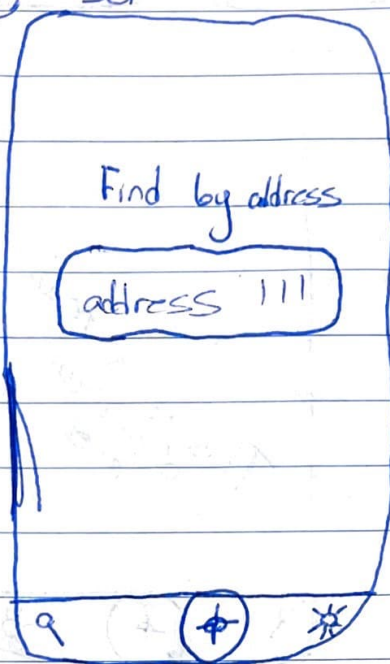 Find by address
address 111